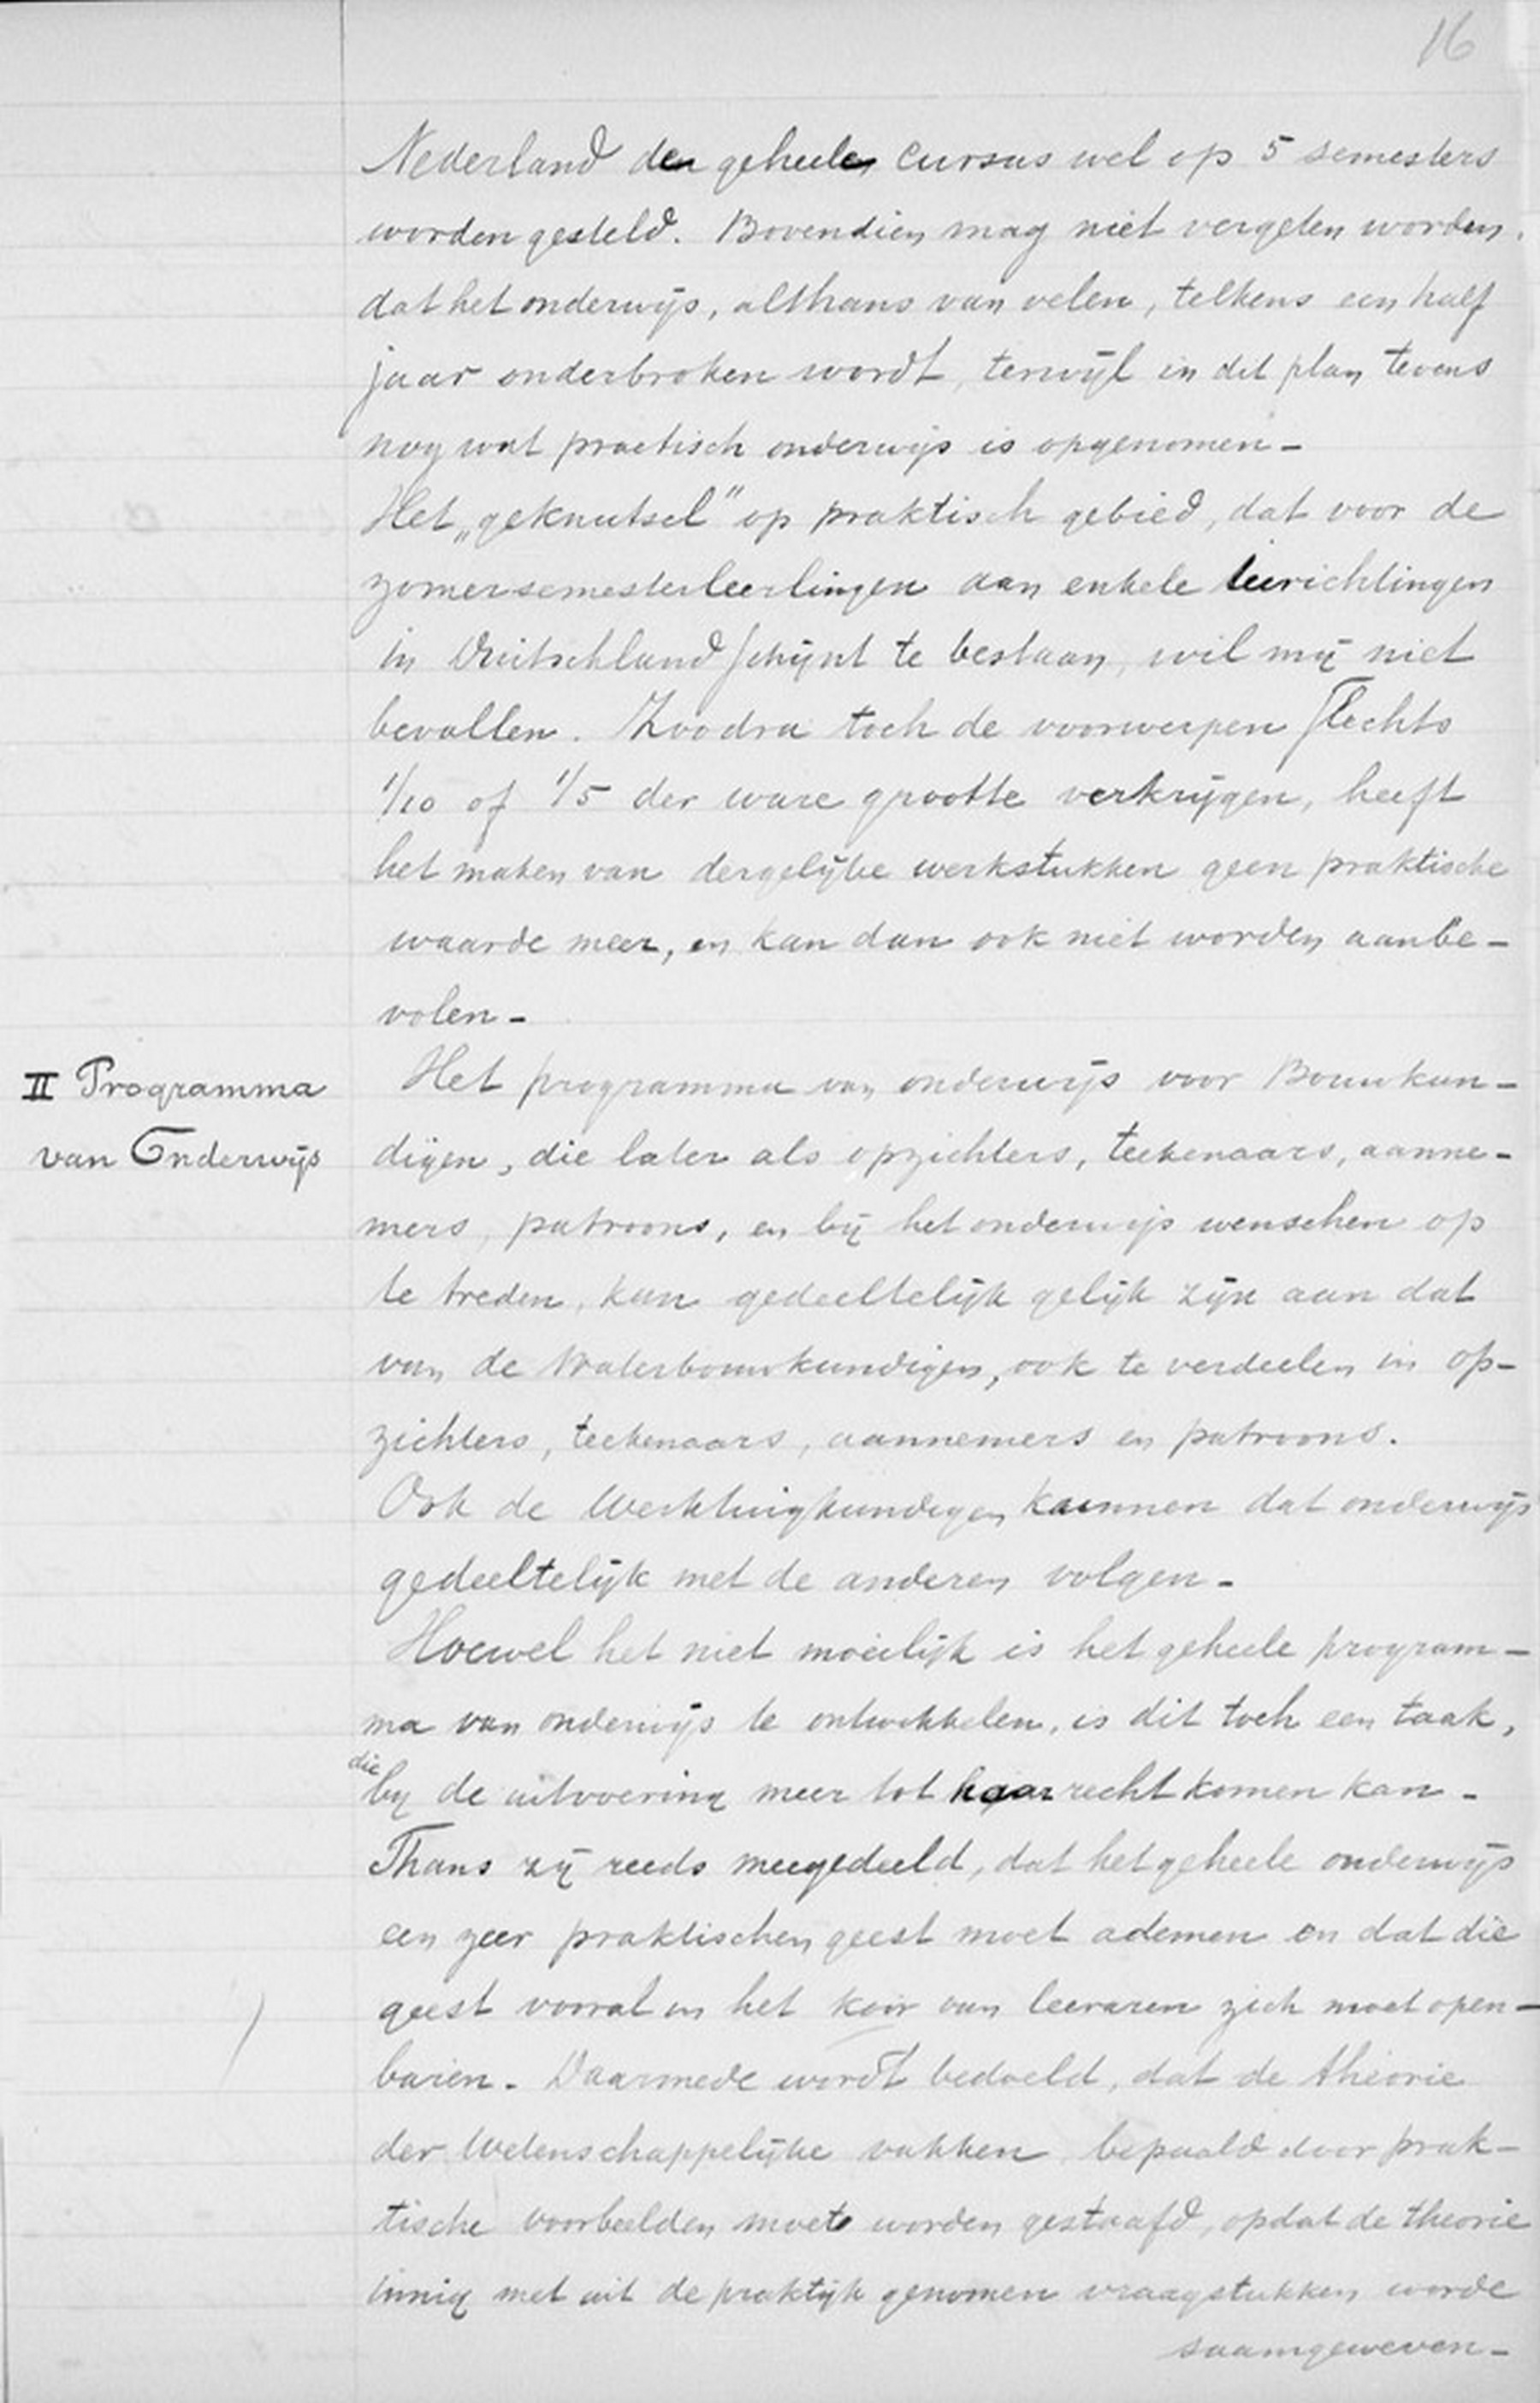 16
Nederland den geheelen cursus wel op 5 semesters
worden gesteld. Bovendien mag niet vergeten worden,
dat het onderwijs, althans van velen, telkens een half
jaar onderbroken wordt, terwijl in dit plan tevens
nog wat practisch onderwijs is opgenomen -
Het „geknutsel" op praktisch gebied, dat voor de
zomersemesterleerlingen aan enkele leerichtingen
in Duitschland schijnt te bestaan, wil mij niet
bevallen. Zoodra toch de voorwerpen slechts
1/10 of 1/5 der ware grootte verkrijgen, heeft
het maken van dergelijke werkstukken geen praktische
waarde meer, en kan dan ook niet worden aanbe-
volen -
II Programma
van Onderwijs
Het programma van onderwijs voor Bouwkun-
digen, die later als opzichters, teekenaars, aanne-
mers, patroons, en bij het onderwijs wenschen op
te treden, kan gedeeltelijk gelijk zijn aan dat
van de Waterbouwkundigen, ook te verdeelen in op-
zichters, teekenaars, aannemers en patroons.
Ook de Werktuigkundigen kunnen dat onderwijs
gedeeltelijk met de anderen volgen -
Hoewel het niet moeilijk is het geheele program-
ma van onderwijs te ontwikkelen, is dit toch een taak,
die bij de uitvoering meer tot haar recht komen kan -
Thans zij reeds meegedeeld, dat het geheele onderwijs
een zeer praktischen geest moet ademen en dat die
geest vooral in het koor van leeraren zich moet open-
baren - Daarmede wordt bedoeld, dat de theorie
der Wetenschappelijke vakken bepaald door prak-
tische voorbeelden moet worden gestaafd, opdat de theorie
innig met uit de praktijk genomen vraagstukken worde
saamgeweven -